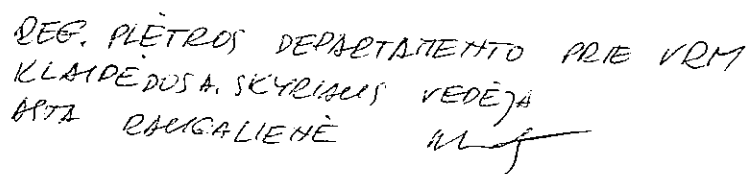 REG. PLĖTROS DEPARTAMENTO PRIE VRM
KLAIPĖDOS A. SKYRIAUS VEDĖJA
ASTA RAUGALIENĖ